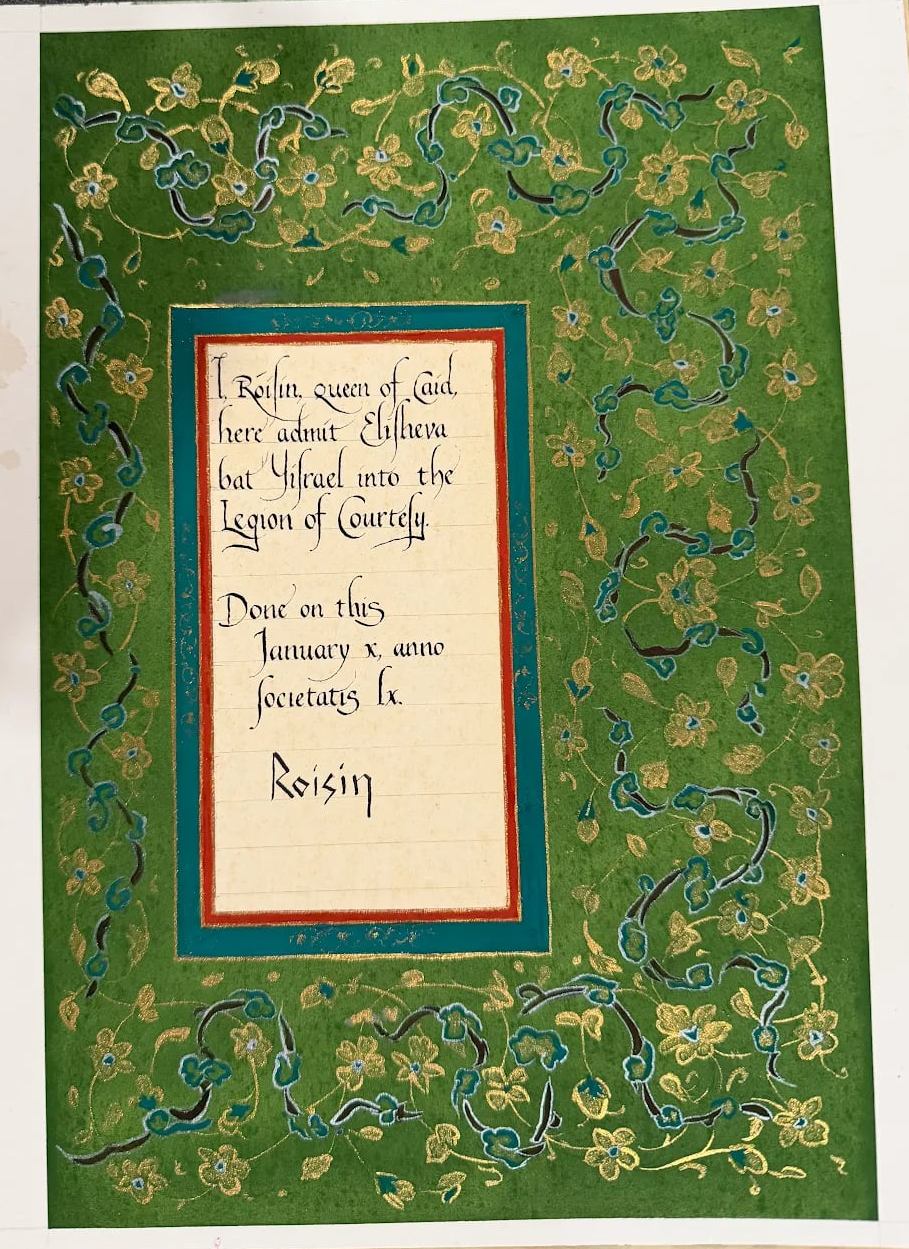 I, Róiſin, queen of Caid,
here admit Eliſheva
bat Yiſrael into the
Legion of Courteſy.
Done on this
January x, anno
ſocietatis lx.
Roisin